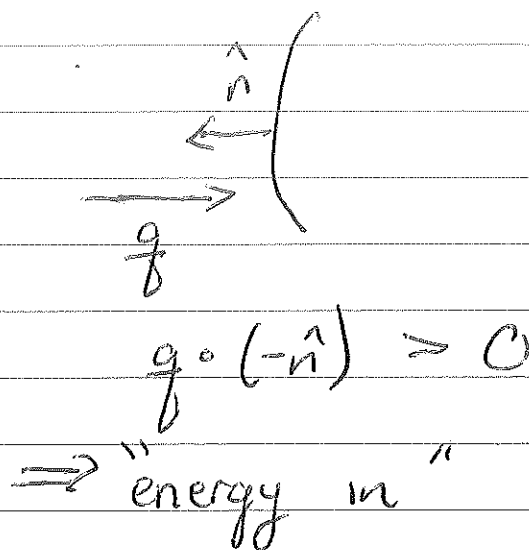 n̂
q
q · (-n̂) > 0
⇒ "energy in"